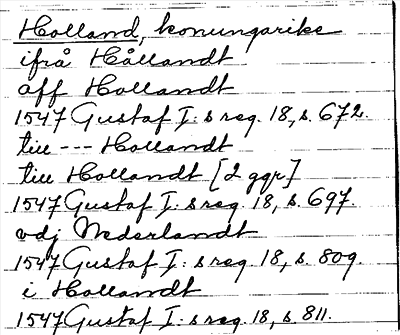 Holland, konungarike
ifrå Hållandt
aff Hollandt
1547 Gustaf I:s reg. 18, s. 672.
till --- Hollandt
till Hollandt [2 ggr]
1547 Gustaf I:s reg. 18, s. 697.
vdj Nederlandt
1547 Gustaf I:s reg. 18, s. 809
i Hollandt
1547 Gustaf I:s reg. 18, s. 811.